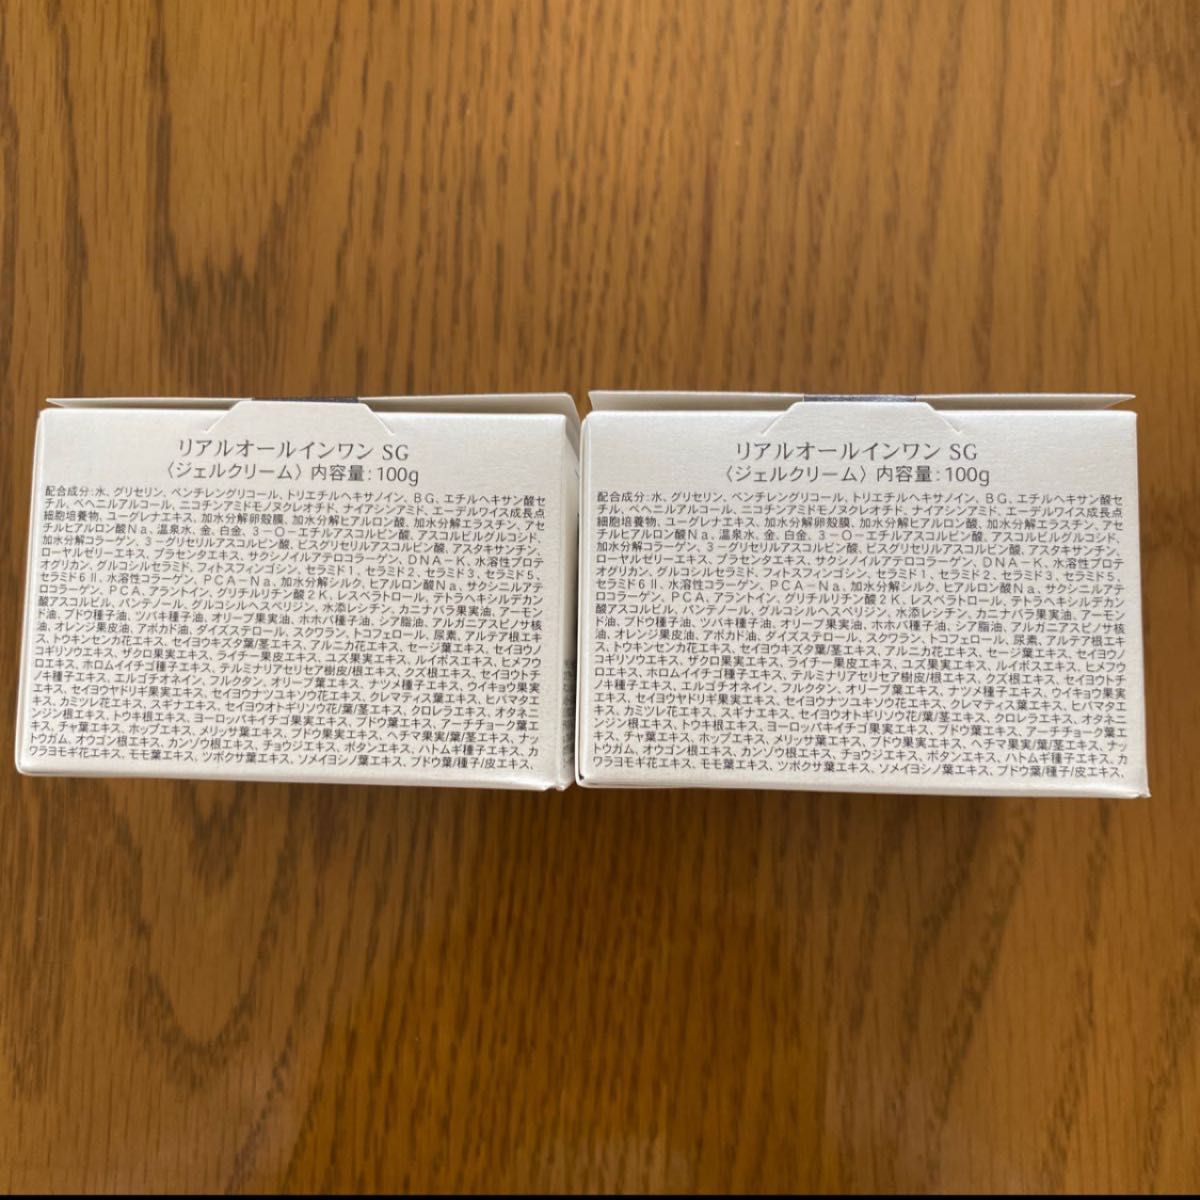 リアルオールインワン SG
〈ジェルクリーム〉内容量：100g
配合成分：水、グリセリン、ペンチレングリコール、トリエチルヘキサノイン、BG、エチルヘキサン酸セ
チル、ベヘニルアルコール、ニコチンアミドモノヌクレオチド、ナイアシンアミド、エーデルワイス成長点
細胞培養物、ユーグレナエキス、加水分解卵殻膜、加水分解ヒアルロン酸、加水分解エラスチン、アセ
チルヒアルロン酸Na、温泉水、金、白金、3－O－エチルアスコルビン酸、アスコルビルグルコシド、
加水分解コラーゲン、3－グリセリルアスコルビン酸、ビスグリセリルアスコルビン酸、アスタキサンチン、
ローヤルゼリーエキス、プラセンタエキス、サクシノイルアテロコラーゲン、DNA－K、水溶性プロテ
オグリカン、グルコシルセラミド、フィトスフィンゴシン、セラミド1、セラミド2、セラミド3、セラミド5、
セラミド6Ⅱ、水溶性コラーゲン、PCA－Na、加水分解シルク、ヒアルロン酸Na、サクシニルアテ
ロコラーゲン、PCA、アラントイン、グリチルリチン酸2K、レスベラトロール、テトラヘキシルデカン
酸アスコルビル、パンテノール、グルコシルヘスペリジン、水添レシチン、カニナバラ果実油、アーモン
ド油、ブドウ種子油、ツバキ種子油、オリーブ果実油、ホホバ種子油、シア脂油、アルガニアスピノサ核
油、オレンジ果皮油、アボカド油、ダイズステロール、スクワラン、トコフェロール、尿素、アルテア根エキ
ス、トウキンセンカ花エキス、セイヨウキズタ葉/茎エキス、アルニカ花エキス、セージ葉エキス、セイヨウノ
コギリソウエキス、ザクロ果実エキス、ライチー果皮エキス、ユズ果実エキス、ルイボスエキス、ヒメフウ
ロエキス、ホロムイイチゴ種子エキス、テルミナリアセリセア樹皮/根エキス、クズ根エキス、セイヨウトチ
ノキ種子エキス、エルゴチオネイン、フルクタン、オリーブ葉エキス、ナツメ種子エキス、ウイキョウ果実
エキス、セイヨウヤドリギ果実エキス、セイヨウナツユキソウ花エキス、クレマティス葉エキス、ヒバマタエ
キス、カミツレ花エキス、スギナエキス、セイヨウオトギリソウ花/葉/茎エキス、クロレラエキス、オタネニ
ンジン根エキス、トウキ根エキス、ヨーロッパキイチゴ果実エキス、ブドウ葉エキス、アーチチョーク葉エ
キス、チャ葉エキス、ホップエキス、メリッサ葉エキス、ブドウ果実エキス、ヘチマ果実/葉/茎エキス、ナッ
トウガム、オウゴン根エキス、カンゾウ根エキス、チョウジエキス、ボタンエキス、ハトムギ種子エキス、カ
ワラヨモギ花エキス、モモ葉エキス、ツボクサ葉エキス、ソメイヨシノ葉エキス、ブドウ葉/種子/皮エキス、
リアルオールインワン SG
〈ジェルクリーム〉内容量：100g
配合成分：水、グリセリン、ペンチレングリコール、トリエチルヘキサノイン、BG、エチルヘキサン酸セ
チル、ベヘニルアルコール、ニコチンアミドモノヌクレオチド、ナイアシンアミド、エーデルワイス成長点
細胞培養物、ユーグレナエキス、加水分解卵殻膜、加水分解ヒアルロン酸、加水分解エラスチン、アセ
チルヒアルロン酸Na、温泉水、金、白金、3－O－エチルアスコルビン酸、アスコルビルグルコシド、
加水分解コラーゲン、3－グリセリルアスコルビン酸、ビスグリセリルアスコルビン酸、アスタキサンチン、
ローヤルゼリーエキス、プラセンタエキス、サクシノイルアテロコラーゲン、DNA－K、水溶性プロテ
オグリカン、グルコシルセラミド、フィトスフィンゴシン、セラミド1、セラミド2、セラミド3、セラミド5、
セラミド6Ⅱ、水溶性コラーゲン、PCA－Na、加水分解シルク、ヒアルロン酸Na、サクシニルアテ
ロコラーゲン、PCA、アラントイン、グリチルリチン酸2K、レスベラトロール、テトラヘキシルデカン
酸アスコルビル、パンテノール、グルコシルヘスペリジン、水添レシチン、カニナバラ果実油、アーモン
ド油、ブドウ種子油、ツバキ種子油、オリーブ果実油、ホホバ種子油、シア脂油、アルガニアスピノサ核
油、オレンジ果皮油、アボカド油、ダイズステロール、スクワラン、トコフェロール、尿素、アルテア根エキ
ス、トウキンセンカ花エキス、セイヨウキズタ葉/茎エキス、アルニカ花エキス、セージ葉エキス、セイヨウノ
コギリソウエキス、ザクロ果実エキス、ライチー果皮エキス、ユズ果実エキス、ルイボスエキス、ヒメフウ
ロエキス、ホロムイイチゴ種子エキス、テルミナリアセリセア樹皮/根エキス、クズ根エキス、セイヨウトチ
ノキ種子エキス、エルゴチオネイン、フルクタン、オリーブ葉エキス、ナツメ種子エキス、ウイキョウ果実
エキス、セイヨウヤドリギ果実エキス、セイヨウナツユキソウ花エキス、クレマティス葉エキス、ヒバマタエ
キス、カミツレ花エキス、スギナエキス、セイヨウオトギリソウ花/葉/茎エキス、クロレラエキス、オタネニ
ンジン根エキス、トウキ根エキス、ヨーロッパキイチゴ果実エキス、ブドウ葉エキス、アーチチョーク葉エ
キス、チャ葉エキス、ホップエキス、メリッサ葉エキス、ブドウ果実エキス、ヘチマ果実/葉/茎エキス、ナッ
トウガム、オウゴン根エキス、カンゾウ根エキス、チョウジエキス、ボタンエキス、ハトムギ種子エキス、カ
ワラヨモギ花エキス、モモ葉エキス、ツボクサ葉エキス、ソメイヨシノ葉エキス、ブドウ葉/種子/皮エキス、